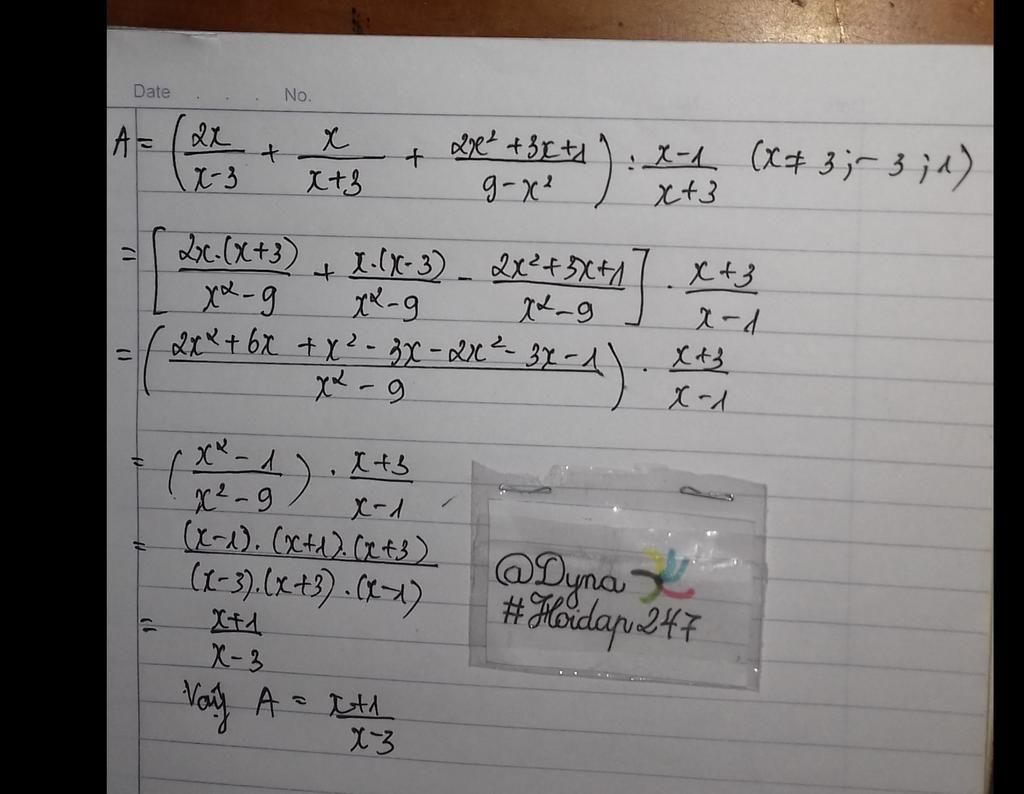 Date . . . No.
A = (2x/(x-3) + x/(x+3) + (2x² + 3x + 1)/(9-x²)) : (x-1)/(x+3) (x ≠ 3; -3; 1)
= [2x.(x+3)/(x²-9) + x.(x-3)/(x²-9) - (2x²+3x+1)/(x²-9)] . (x+3)/(x-1)
= ((2x² + 6x + x² - 3x - 2x² - 3x - 1)/(x² - 9)) . (x+3)/(x-1)
= ((x² - 1)/(x² - 9)) . (x+3)/(x-1)
= (x-1).(x+1).(x+3)/(x-3).(x+3).(x-1)
= (x+1)/(x-3)
Vậy A = (x+1)/(x-3)
@Dyna
#Hoidap247